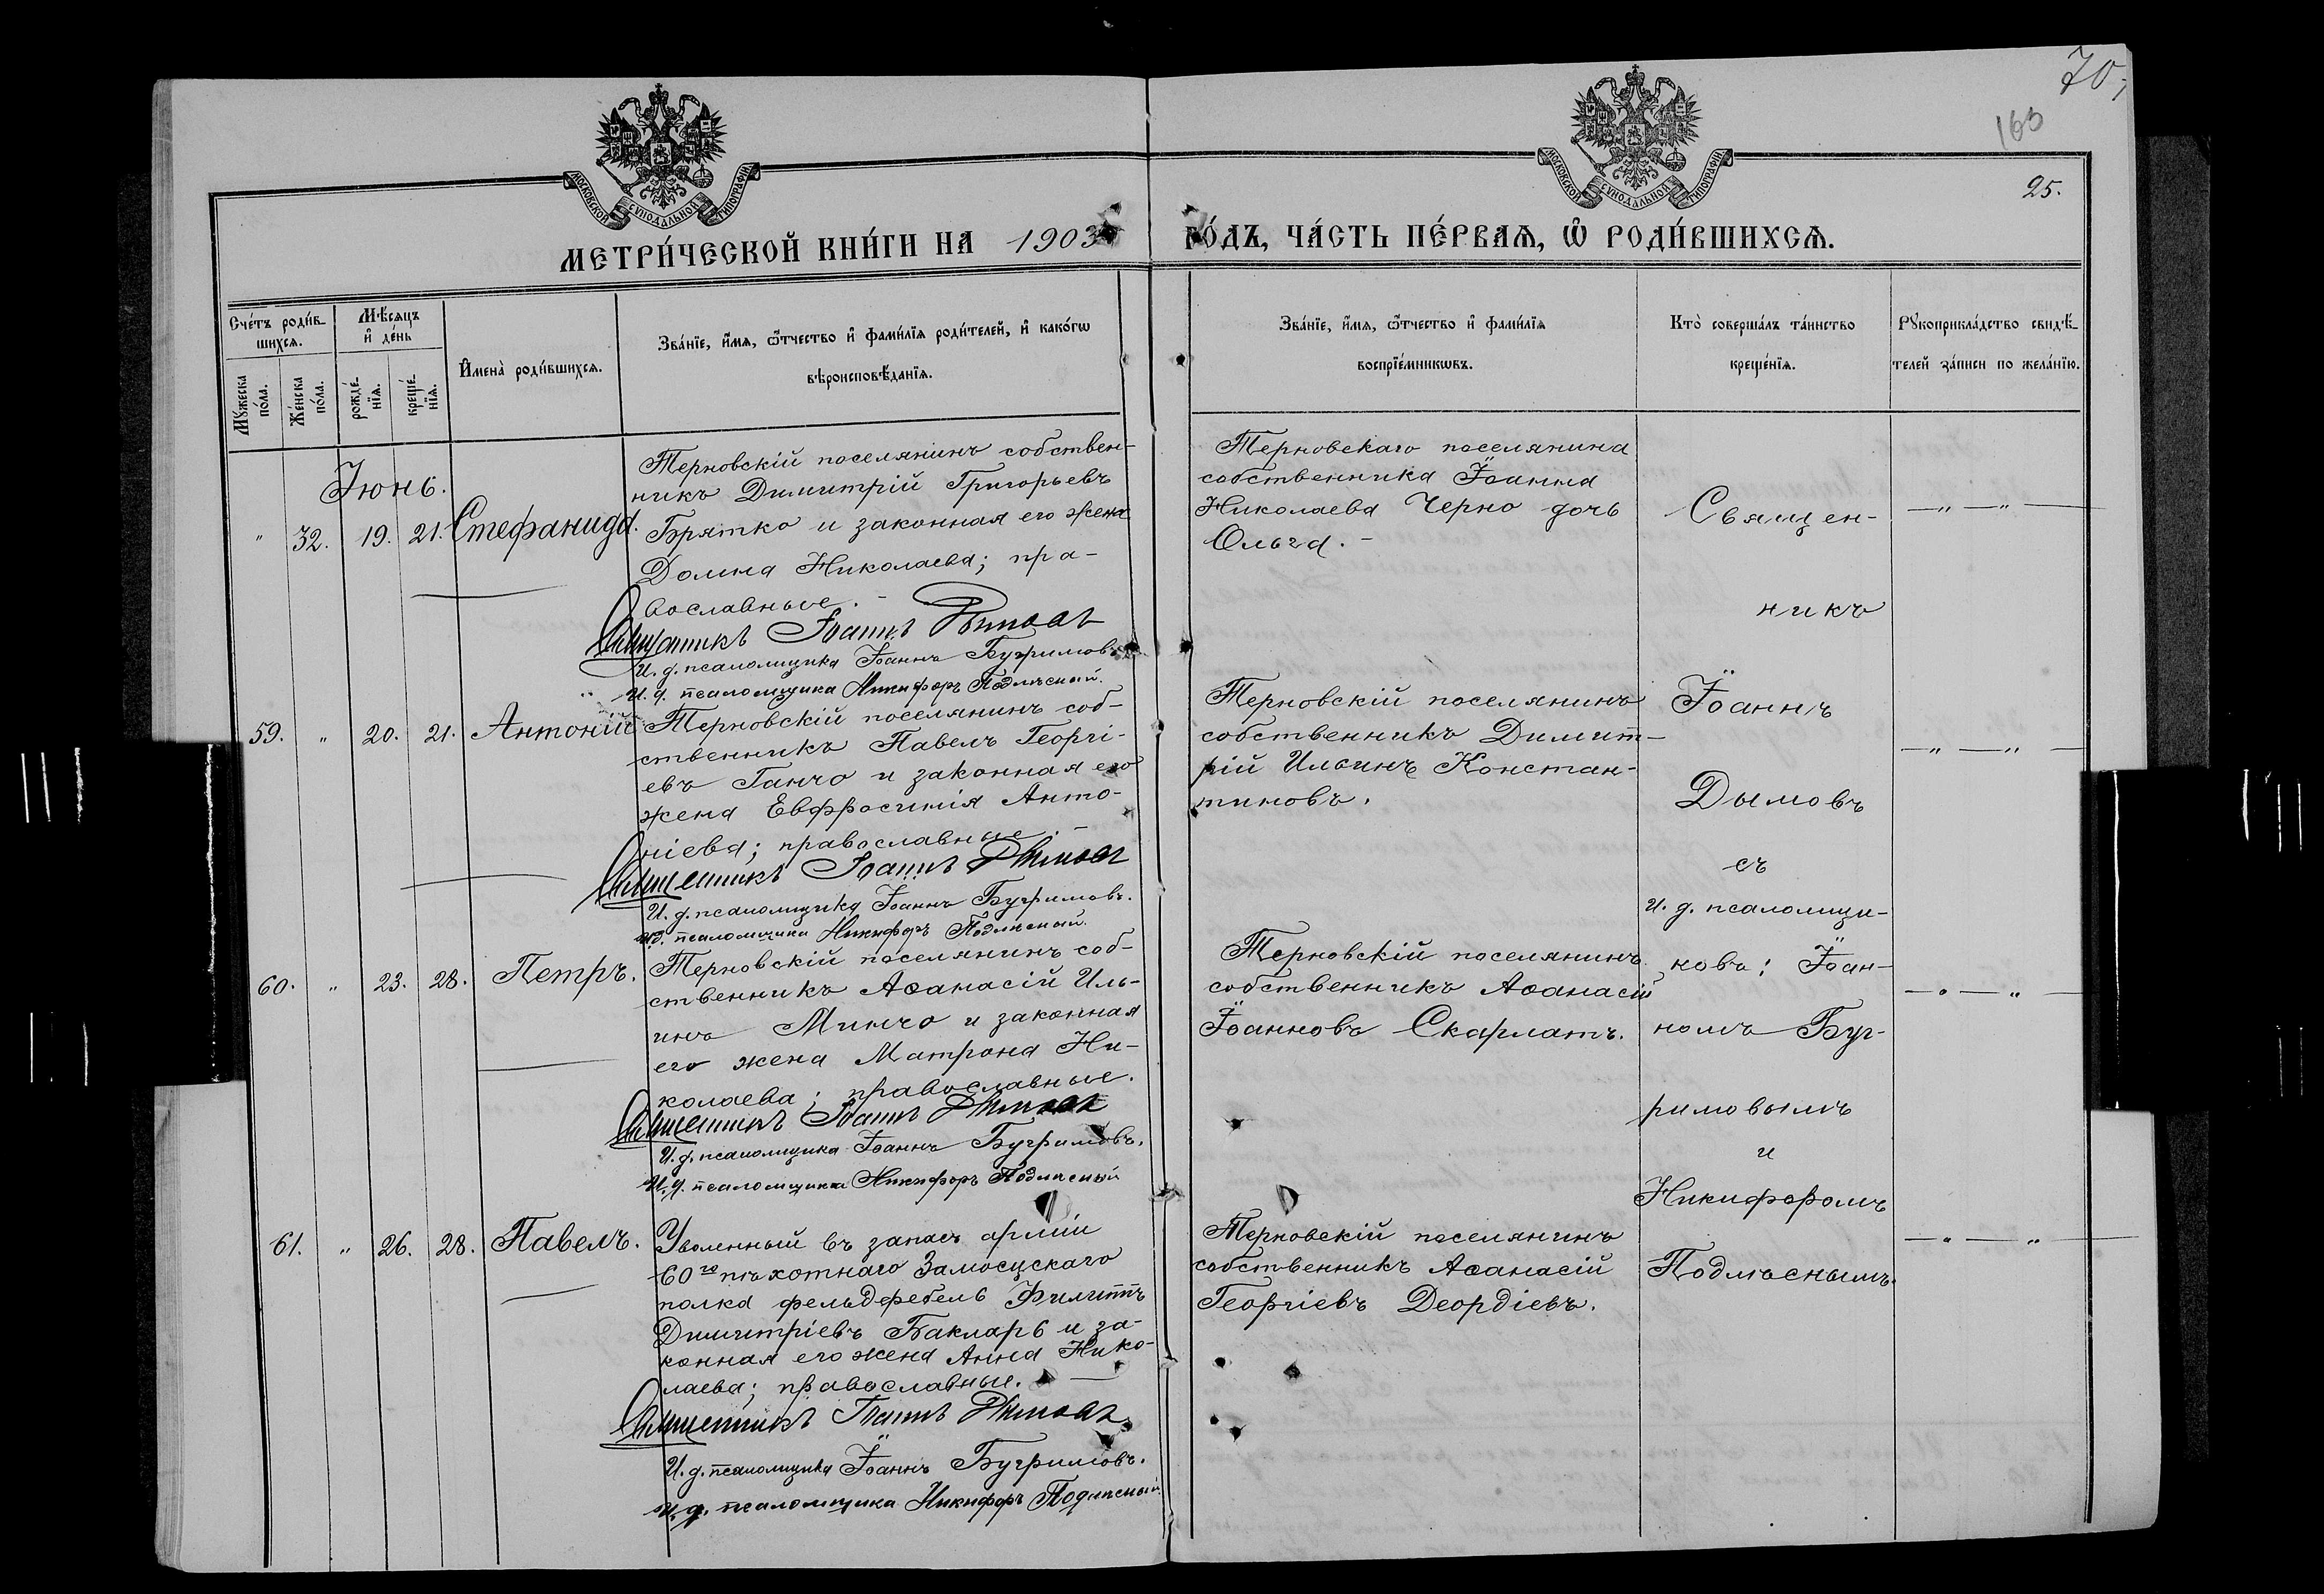 70,
163
25.
МОСКОВСКОЙ СѴНОДАЛЬНОЙ ТИПОГРАФІИ
МОСКОВСКОЙ СѴНОДАЛЬНОЙ ТИПОГРАФІИ
МЕТРИ́ЧЕСКОЙ КНИ́ГИ НА 1903 ГО́ДЪ, ЧА́СТЬ ПЕ́РВАѦ, Ѽ РОДИ́ВШИХСѦ.
Сче́тъ роди́в-
шихсѧ.
Мꙋжеска по́ла.
Же́нска по́ла.
Мѣ́сѧцъ
и҆ де́нь
рожде́-
нїѧ.
креще́-
нїѧ.
И҆мена̀ роди́вшихсѧ.
Зва́нїе, и҆́мѧ, ѻ҆́тчество и҆ фами́лїѧ роди́телей, и҆ како́гѡ
вѣроисповѣ́данїѧ.
Зва́нїе, и҆́мѧ, ѻ҆́тчество и҆ фами́лїѧ
воспрїе́мникѡвъ.
Кто̀ соверша́лъ та́инство
креще́нїѧ.
Рꙋкоприкла́дство свидѣ́-
телей за́писи по жела́нїю.
Іюнь.
" 32. 19. 21. Стефанида.
Терновскій поселянинъ собствен-
никъ Димитрій Григорьевъ
Брятко и законная его жена
Домна Николаева; пра-
вославные. -
Священникъ Іоаннъ Дымовъ
И. д. псаломщика Іоаннъ Бугримовъ
И. д. псаломщика Никифоръ Подлѣсный.
Терновскаго поселянина
собственника Іоанна
Николаева Черно дочь
Ольга. -
59. " 20. 21. Антоній
Терновскій поселянинъ соб-
ственникъ Павелъ Георгі-
евъ Ганчо и законная его
жена Евфросинія Анто-
ніева; православные. -
Священникъ Іоаннъ Дымовъ
И. д. псаломщика Іоаннъ Бугримовъ.
И.д. псаломщика Никифоръ Подлѣсный.
Терновскій поселянинъ
собственникъ Димит-
рій Ильинъ Констан-
тиновъ.
60. " 23. 28. Петръ.
Терновскій поселянинъ соб-
ственникъ Аѳанасій Иль-
инъ Минчо и законная
его жена Матрона Ни-
колаева; православные.
Священникъ Іоаннъ Дымовъ
И. д. псаломщика Іоаннъ Бугримовъ.
И. д. псаломщика Никифоръ Подлѣсный
Терновскій поселянинъ
собственникъ Аѳанасій
Іоанновъ Скарлатъ.
61. " 26. 28. Павелъ.
Уволенный въ запасъ арміи
60го пѣхотнаго Замосцскаго
полка фельдфебель Филиппъ
Димитріевъ Бакларь и за-
конная его жена Анна Нико-
лаева; православные. -
Священникъ Іоаннъ Дымовъ
И. д. псаломщика Іоаннъ Бугримовъ.
И. д. псаломщика Никифоръ Подлѣсный
Терновскій поселянинъ
собственникъ Аѳанасій
Георгіевъ Деордіевъ.
Священ-
никъ
Іоаннъ
Дымовъ
съ
и. д. псаломщи-
ковъ: Іоан-
номъ Буг-
римовымъ
и
Никифоромъ
Подлѣснымъ.